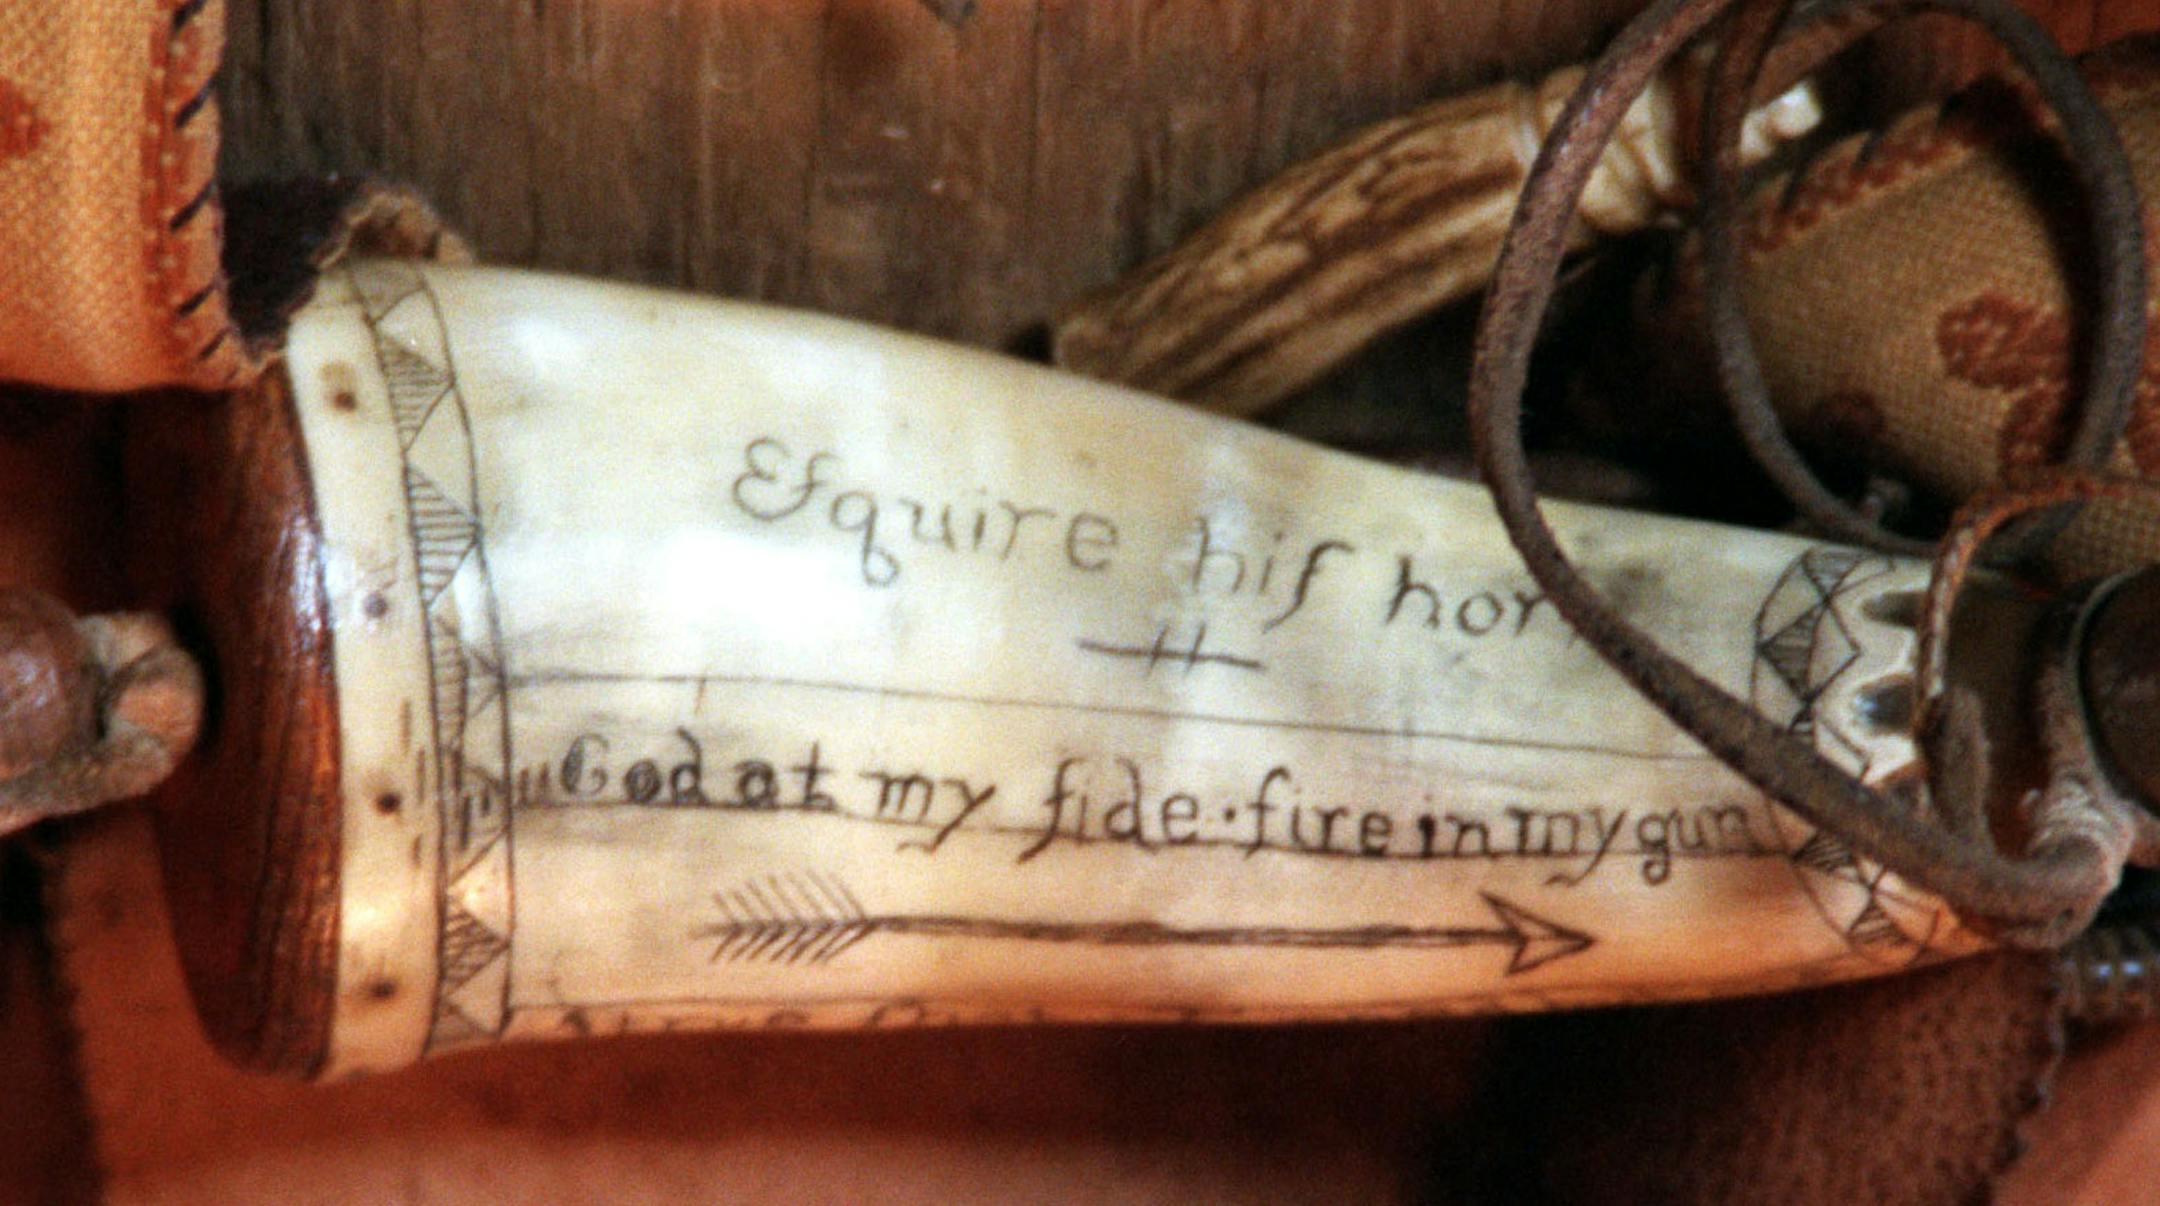 Eſquire hiſ horn
my God at my ſide · fire in my gun